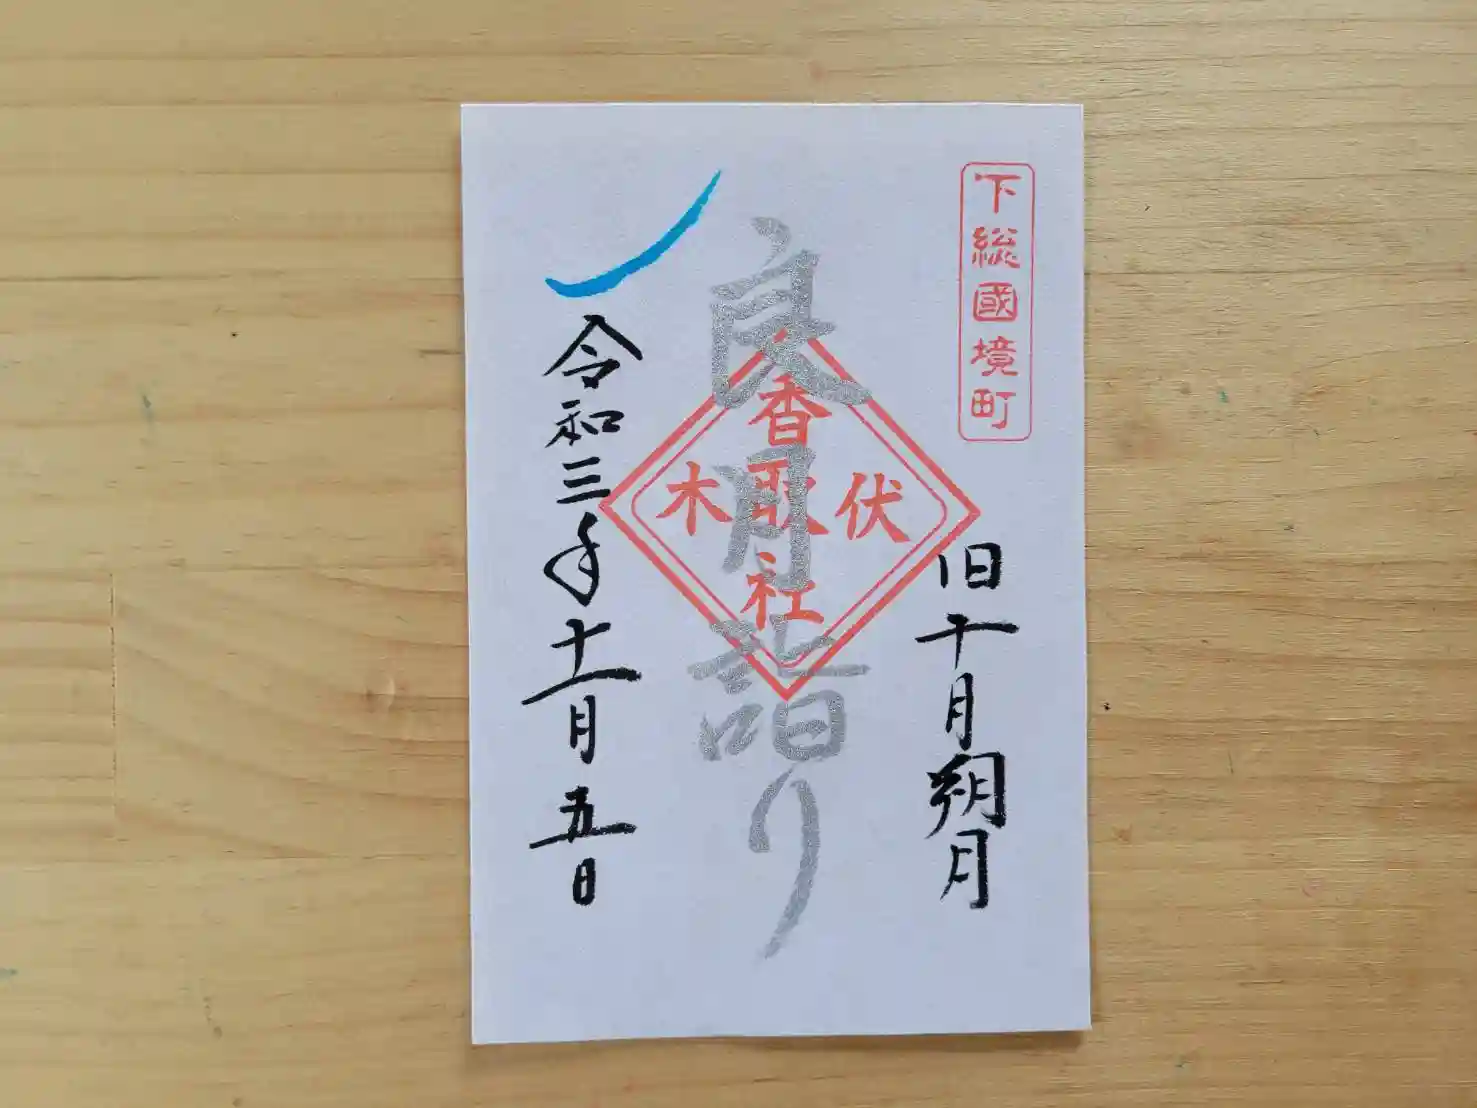 下総國境町
旧十月朔月
良月詣り
香取社
伏木
令和三年十一月五日